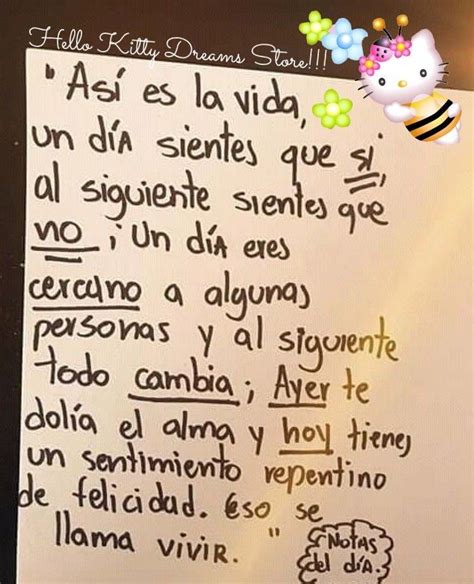 Hello Kitty Dreams Store!!!
"Así es la vida,
un día sientes que si,
al siguiente sientes que
no; Un día eres
cercano a algunas
personas y al siguiente
todo cambia; Ayer te
dolía el alma y hoy tienes
un sentimiento repentino
de felicidad. Eso se
llama vivir."
Notas
del día.